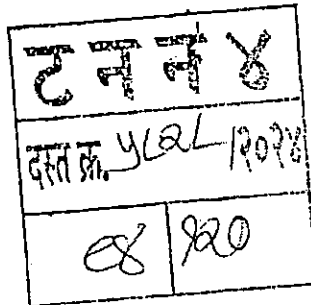 ट न न ४
दस्त क्र. ५८२८ /२०२४
९४ १२०